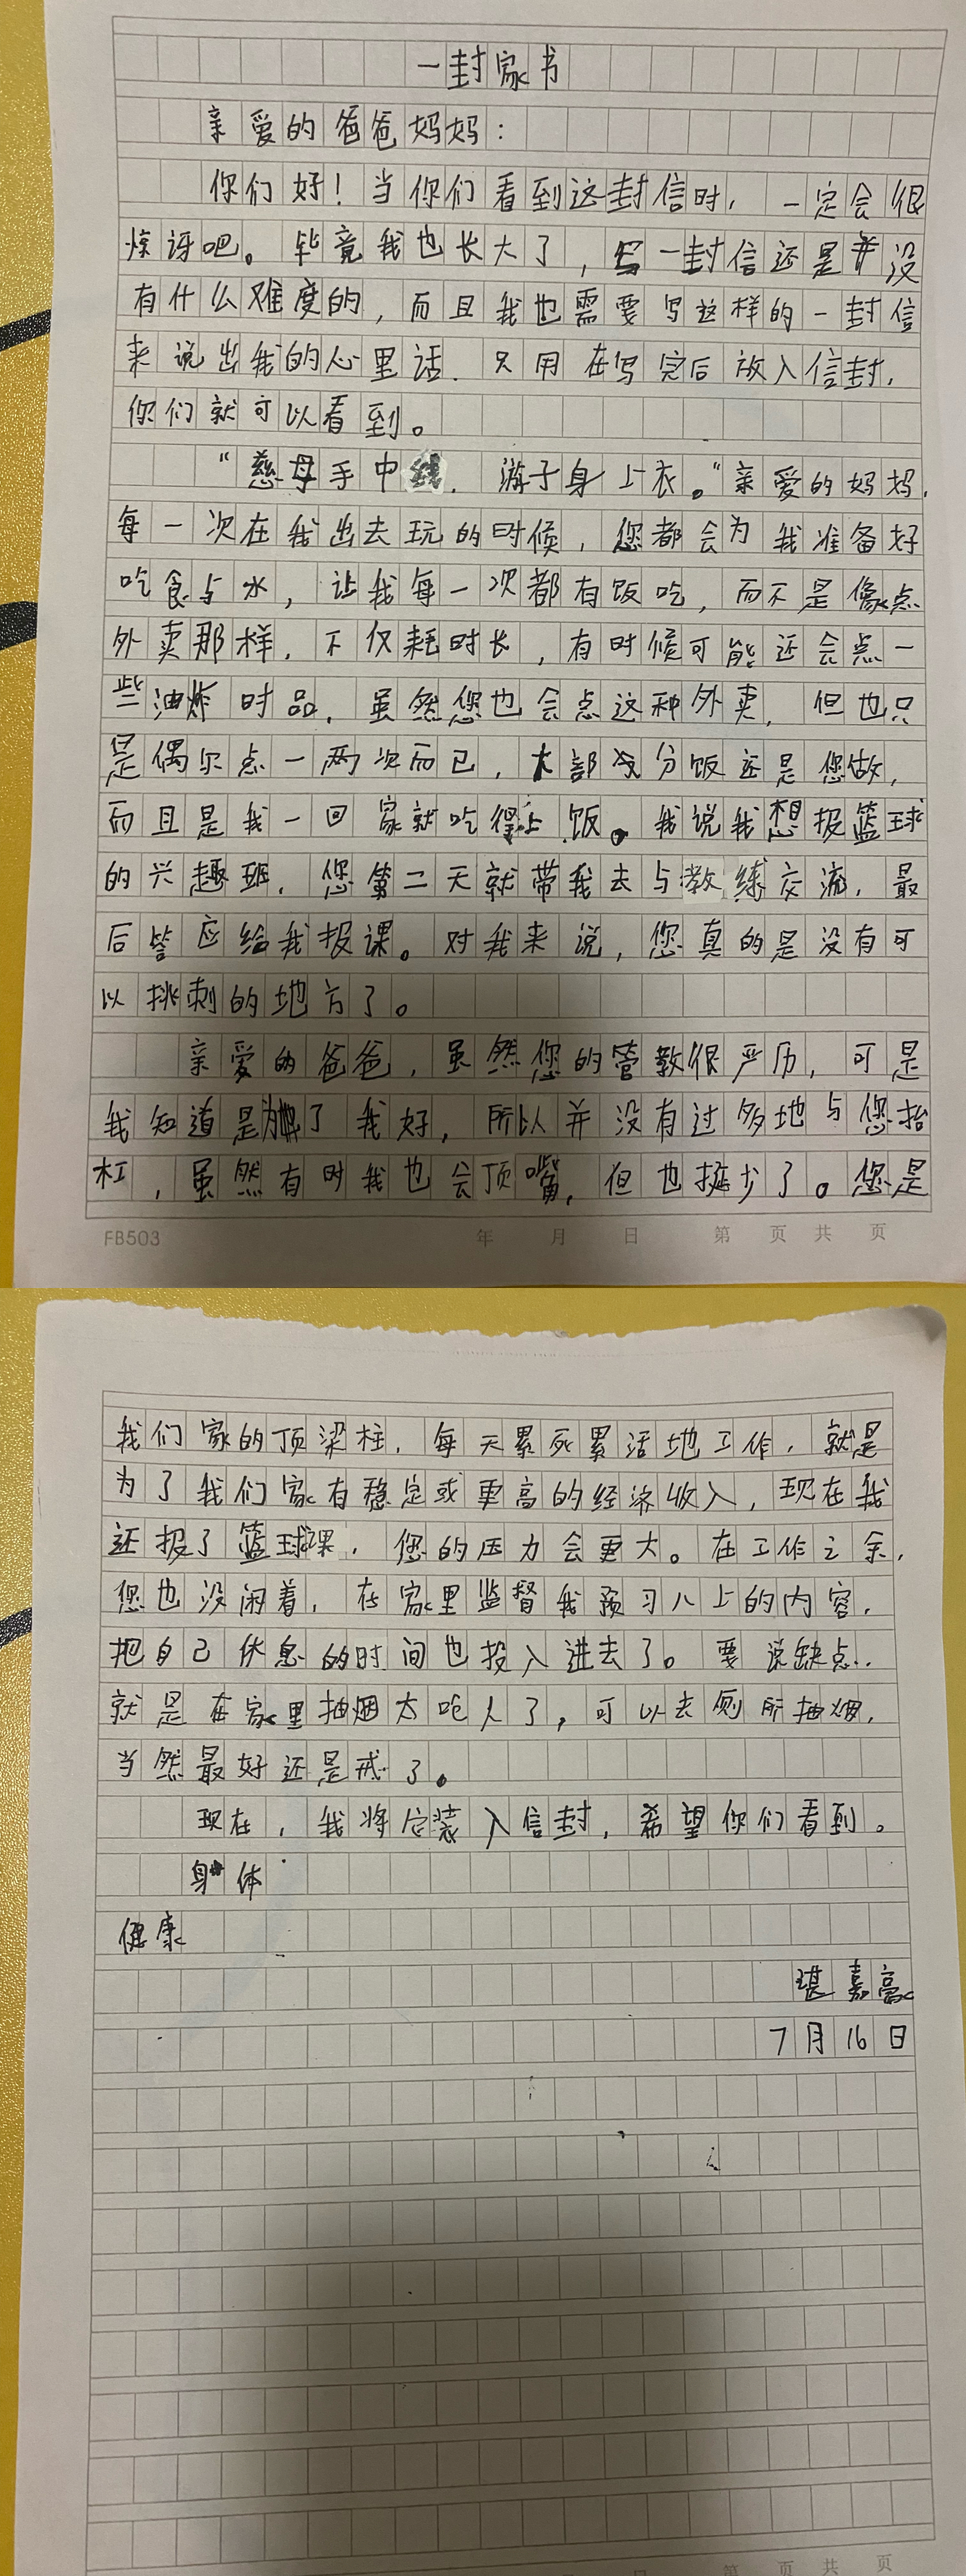 一封家书
亲爱的爸爸妈妈：
你们好！当你们看到这封信时，一定会很
惊讶吧。毕竟我也长大了，写一封信还是并没
有什么难度的，而且我也需要写这样的一封信
来说出我的心里话．只用在写完后放入信封，
你们就可以看到。
“慈母手中线，游子身上衣。”亲爱的妈妈，
每一次在我出去玩的时候，您都会为我准备好
吃食与水，让我每一次都有饭吃，而不是像点
外卖那样，不仅耗时长，有时候可能还会点一
些油炸时品，虽然您也会点这种外卖，但也只
是偶尔点一两次而已，大部分饭还是您做，
而且是我一回家就吃得上饭。我说我想报篮球
的兴趣班，您第二天就带我去与教练交流，最
后答应给我报课。对我来说，您真的是没有可
以挑刺的地方了。
亲爱的爸爸，虽然您的管教很严历，可是
我知道是为了我好，所以并没有过多地与您抬
杠，虽然有时我也会顶嘴，但也挺少了。您是
FB503 年 月 日 第 页 共 页
我们家的顶梁柱，每天累死累活地工作，就是
为了我们家有稳定或更高的经济收入，现在我
还报了篮球课，您的压力会更大。在工作之余，
您也没闲着，在家里监督我预习八上的内容，
把自己休息的时间也投入进去了。要说缺点，
就是在家里抽烟太呛人了，可以去厕所抽烟，
当然最好还是戒了。
现在，我将它装入信封，希望你们看到。
身体
健康
嘉豪
7月16日
第 页 共 页